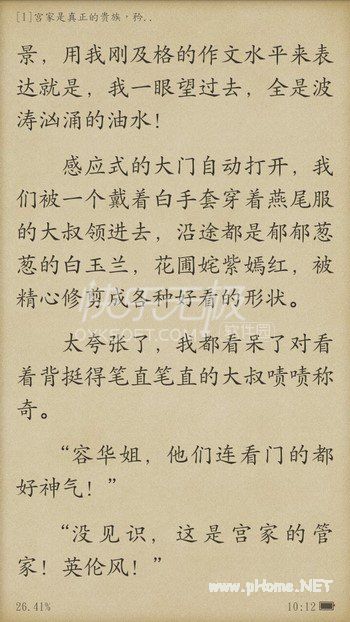 [1]宫家是真正的贵族·矜..
景，用我刚及格的作文水平来表
达就是，我一眼望过去，全是波
涛汹涌的油水！
感应式的大门自动打开，我
们被一个戴着白手套穿着燕尾服
的大叔领进去，沿途都是郁郁葱
葱的白玉兰，花圃姹紫嫣红，被
精心修剪成各种好看的形状。
太夸张了，我都看呆了对看
着背挺得笔直笔直的大叔啧啧称
奇。
“容华姐，他们连看门的都
好神气！”
“没见识，这是宫家的管
家！英伦风！”
www.pHome.NET
26.41%
10:12